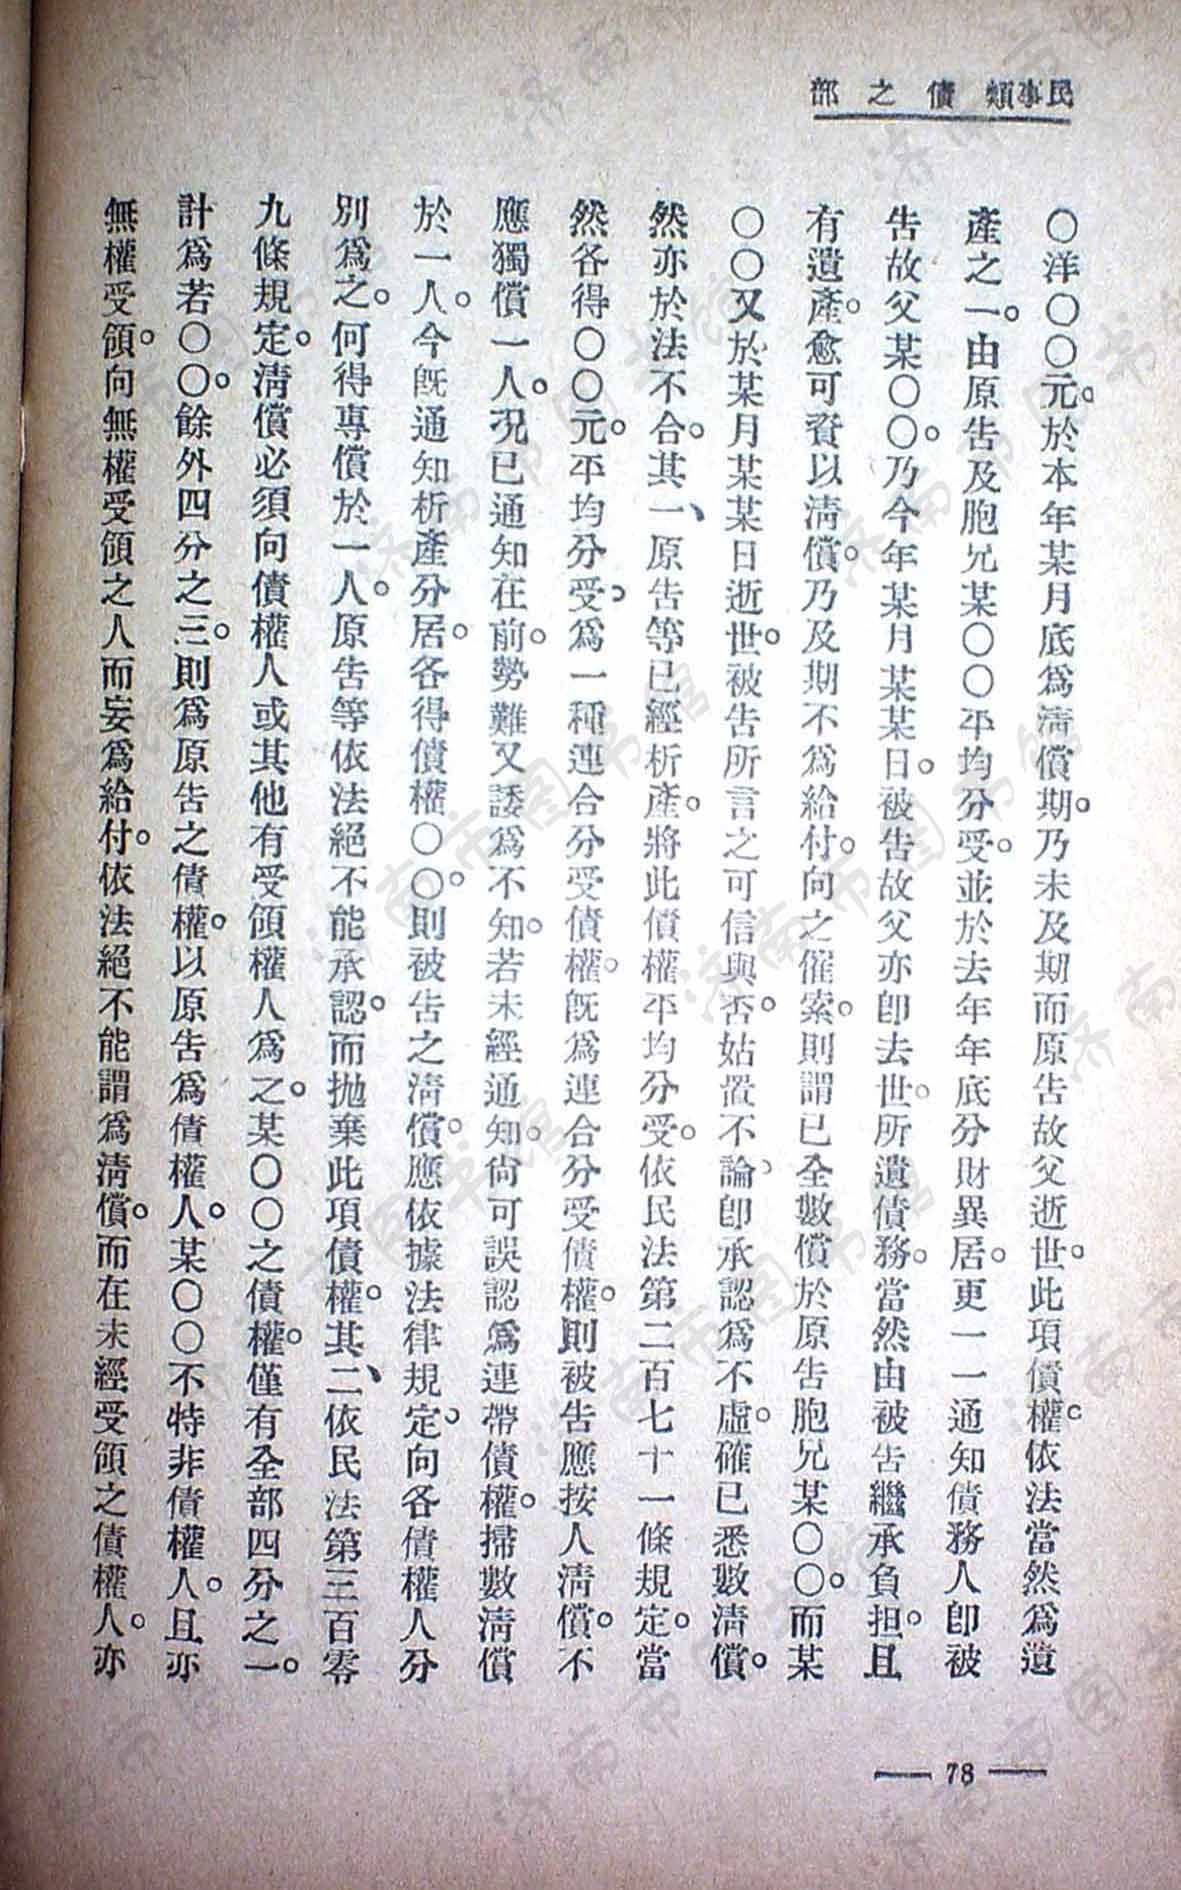 民事類 債之部
〇洋〇〇元。於本年某月底爲淸償期。乃未及期而原告故父逝世。此項債權。依法當然爲遺
產之一。由原告及胞兄某〇〇平均分受。並於去年年底分財異居。更一一通知債務人卽被
告故父某〇〇。乃今年某月某某日。被告故父亦卽去世。所遺債務。當然由被告繼承負担。且
有遺產。愈可資以淸償。乃及期不爲給付。向之催索。則謂已全數償於原告胞兄某〇〇。而某
〇〇又於某月某某日逝世。被告所言之可信與否。姑置不論、卽承認爲不虛。確已悉數淸償。
然亦於法不合。其一、原告等已經析產。將此債權平均分受。依民法第二百七十一條規定。當
然各得〇〇元。平均分受。爲一種連合分受債權。旣爲連合分受債權。則被告應按人淸償。不
應獨償一人。況已通知在前。勢難又諉爲不知。若未經通知。尙可誤認爲連帶債權。掃數淸償
於一人。今旣通知析產分居。各得債權〇〇。則被告之淸償。應依據法律規定。向各債權人分
別爲之。何得專償於一人。原告等依法絕不能承認。而拋棄此項債權。其二、依民法第三百零
九條規定。淸償必須向債權人或其他有受領權人爲之。某〇〇之債權。僅有全部四分之一。
計爲若〇〇。餘外四分之三。則爲原告之債權。以原告爲債權人。某〇〇不特非債權人。且亦
無權受領。向無權受領之人而妄爲給付。依法絕不能謂爲淸償。而在未經受領之債權人。亦
— 78 —
济南市图书馆